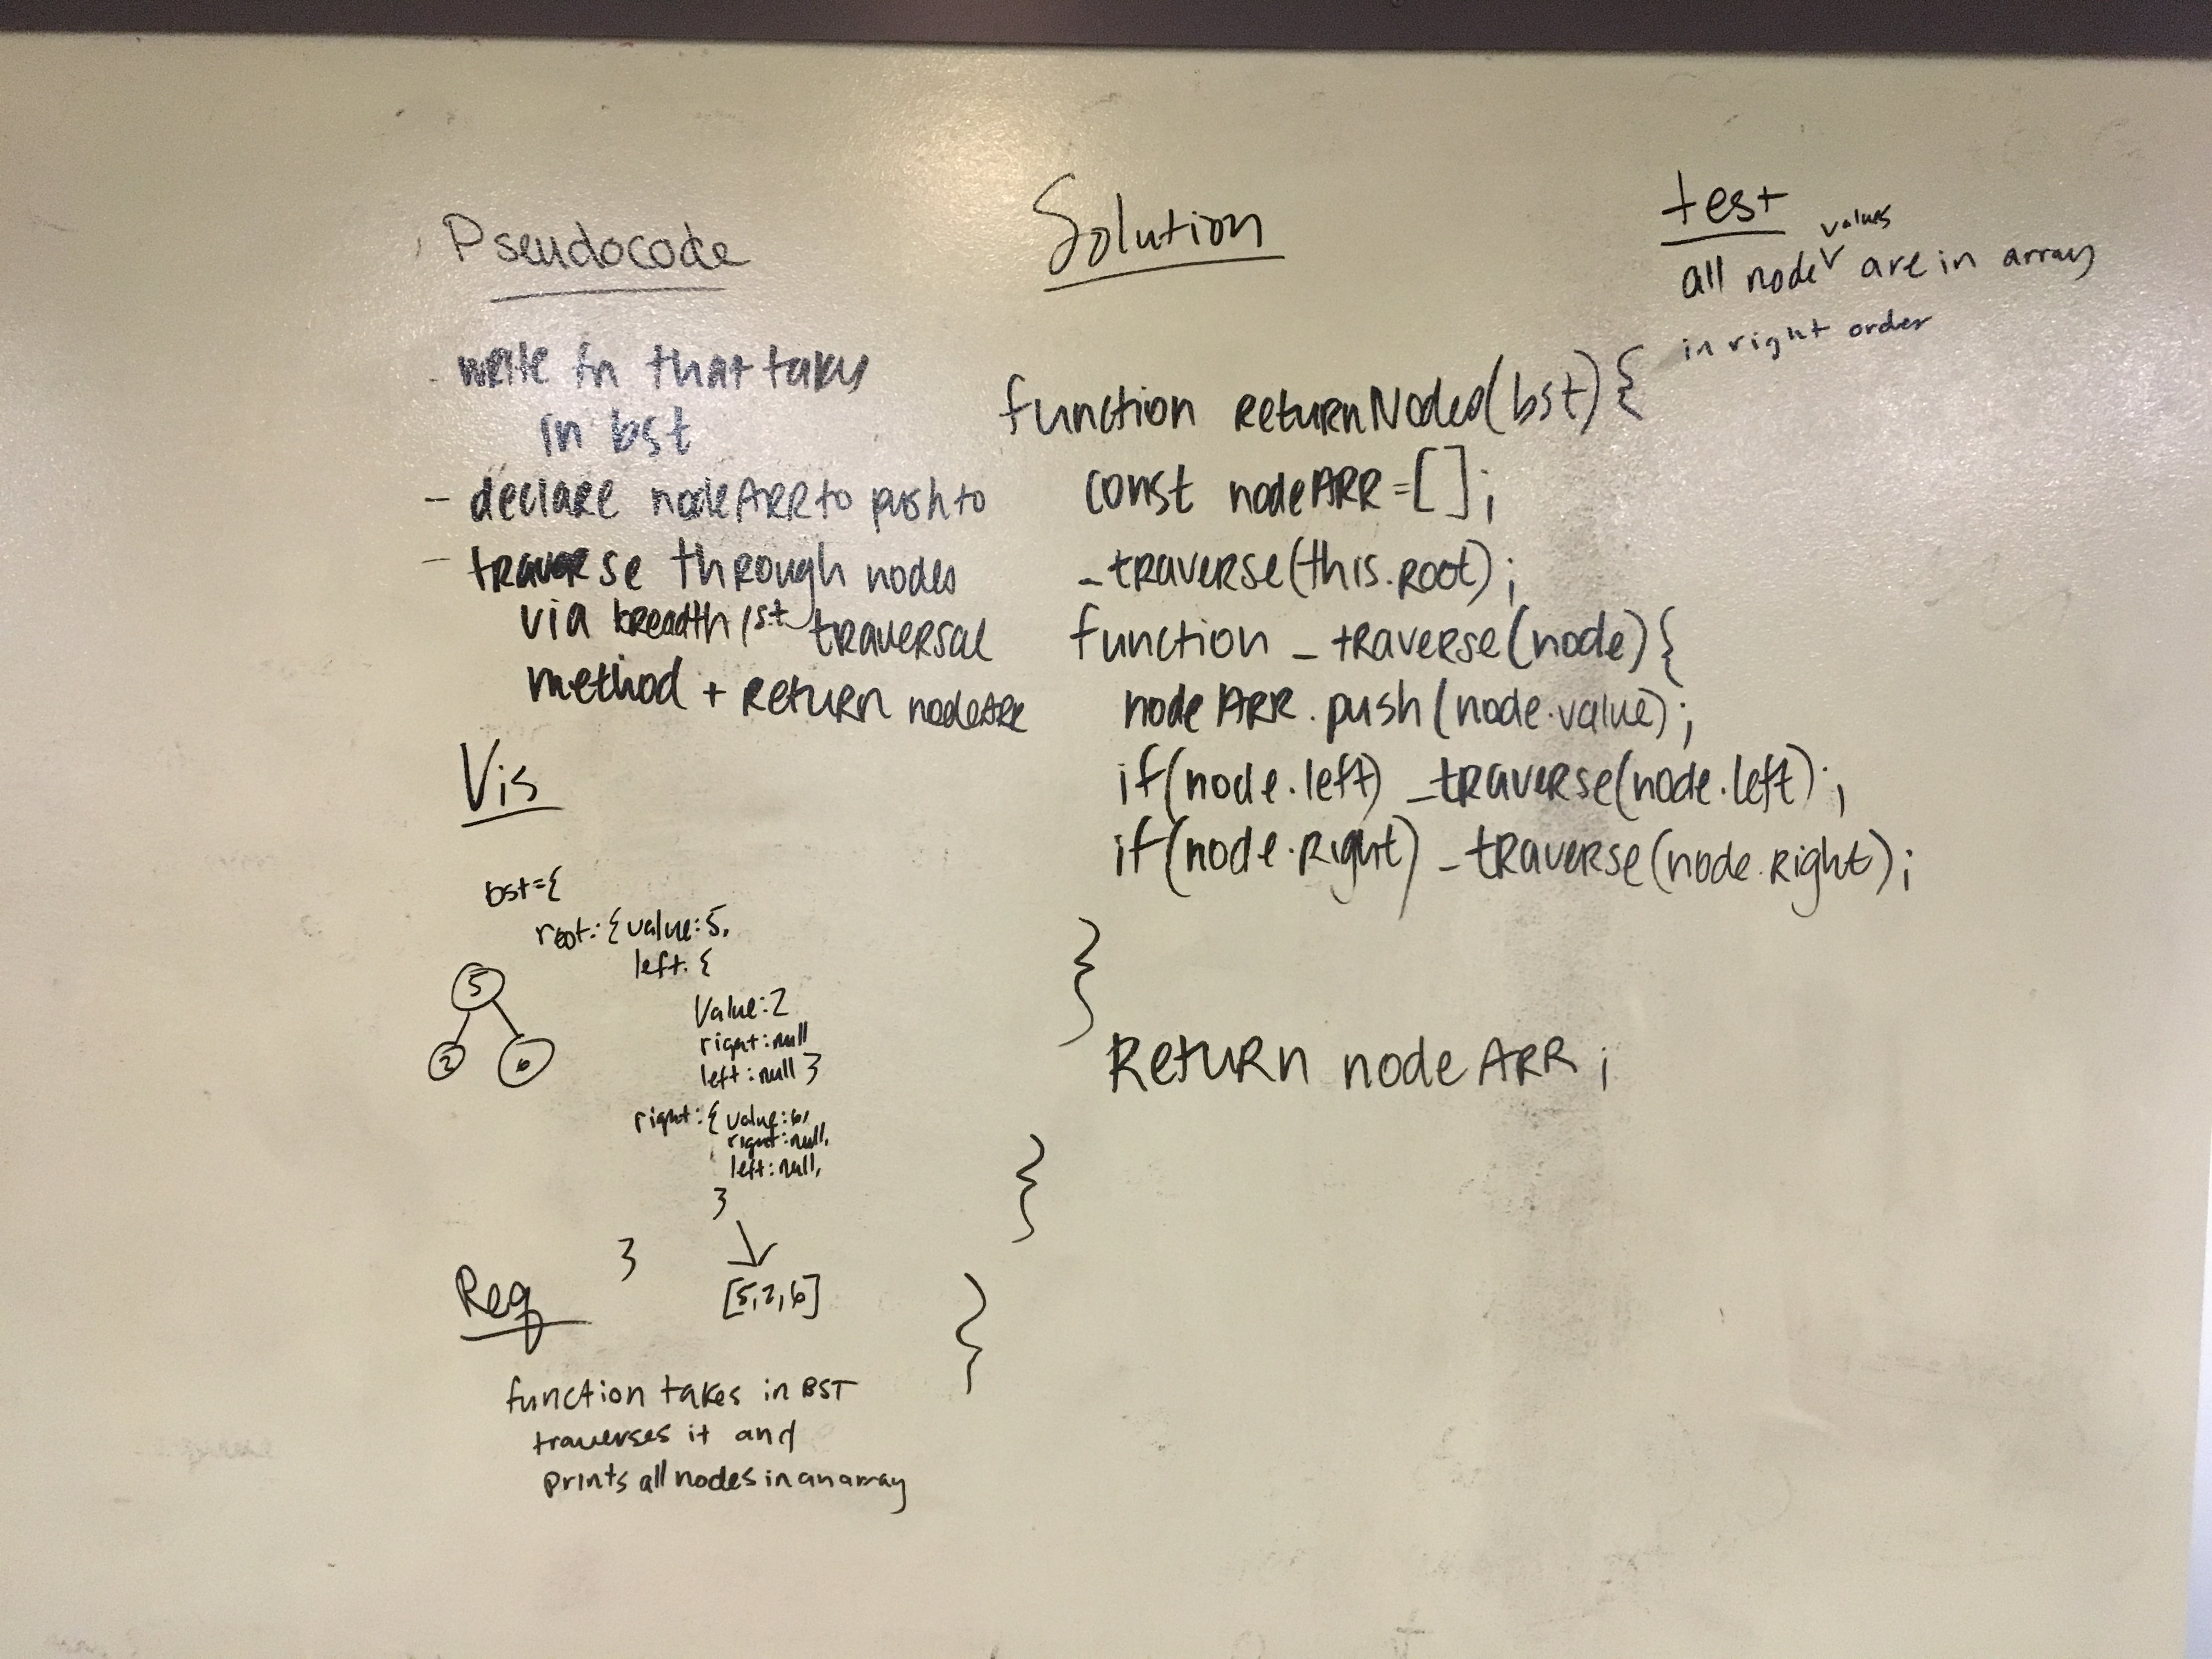 Pseudocode
- write fn that takes
in bst
- declare nodeARR to push to
- traverse through nodes
via breadth 1st traversal
method + return nodeARR
Vis
bst={
root: { value: 5,
left: {
Value: 2
right: null
left: null }
right: { value: 6,
right: null,
left: null,
}
}
5
2
6
[5,2,6]
Req
function takes in BST
traverses it and
prints all nodes in an array
Solution
function returnNodes(bst) {
const nodeARR = [];
_traverse(this.root);
function _traverse(node) {
nodeARR.push(node.value);
if(node.left) _traverse(node.left);
if(node.right) _traverse(node.right);
}
return nodeARR;
}
}
test
values
all node are in array
in right order